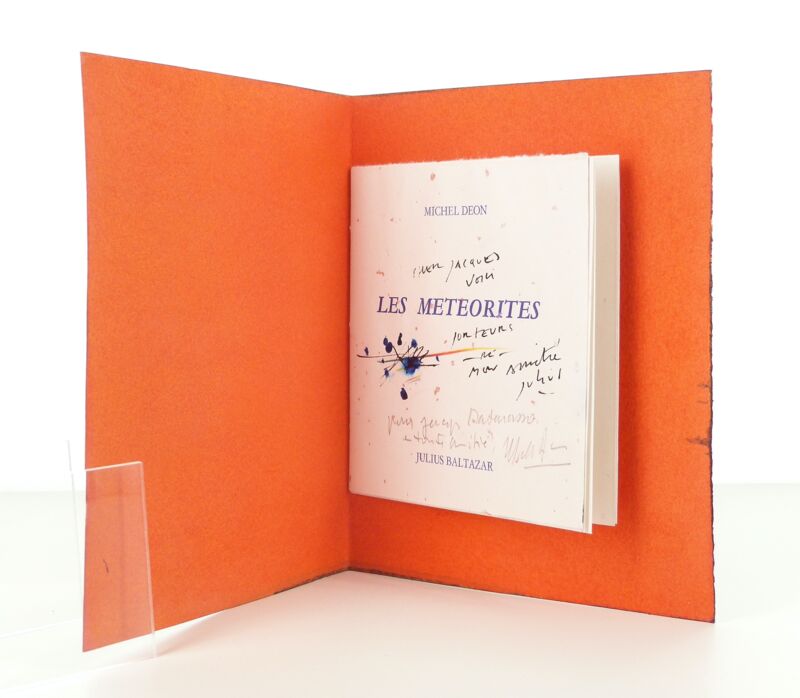 MICHEL DEON
cher Jacques
voici
LES METEORITES
porteurs
- de -
mon amitié
Julius
pour Jacques Matarasso
en toute amitié,
JULIUS BALTAZAR